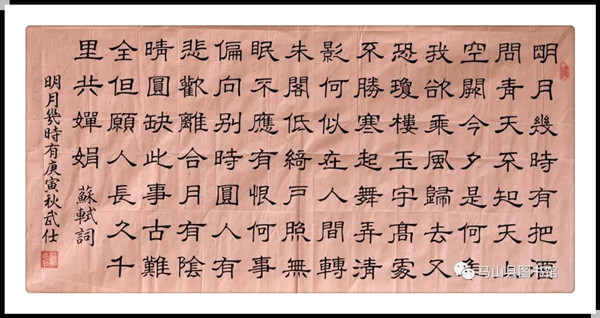 明月幾時有把酒
問青天不知天上
空闕今夕是何年
我欲乘風歸去又
恐瓊樓玉宇高處
不勝寒起舞弄清
影何似在人間轉
朱閣低綺戶照無
眠不應有恨何事
偏向別時圓人有
悲歡離合月有陰
晴圓缺此事古難
全但願人長久千
里共嬋娟 蘇軾詞
明月幾時有庚寅秋武仕
马山县图书馆